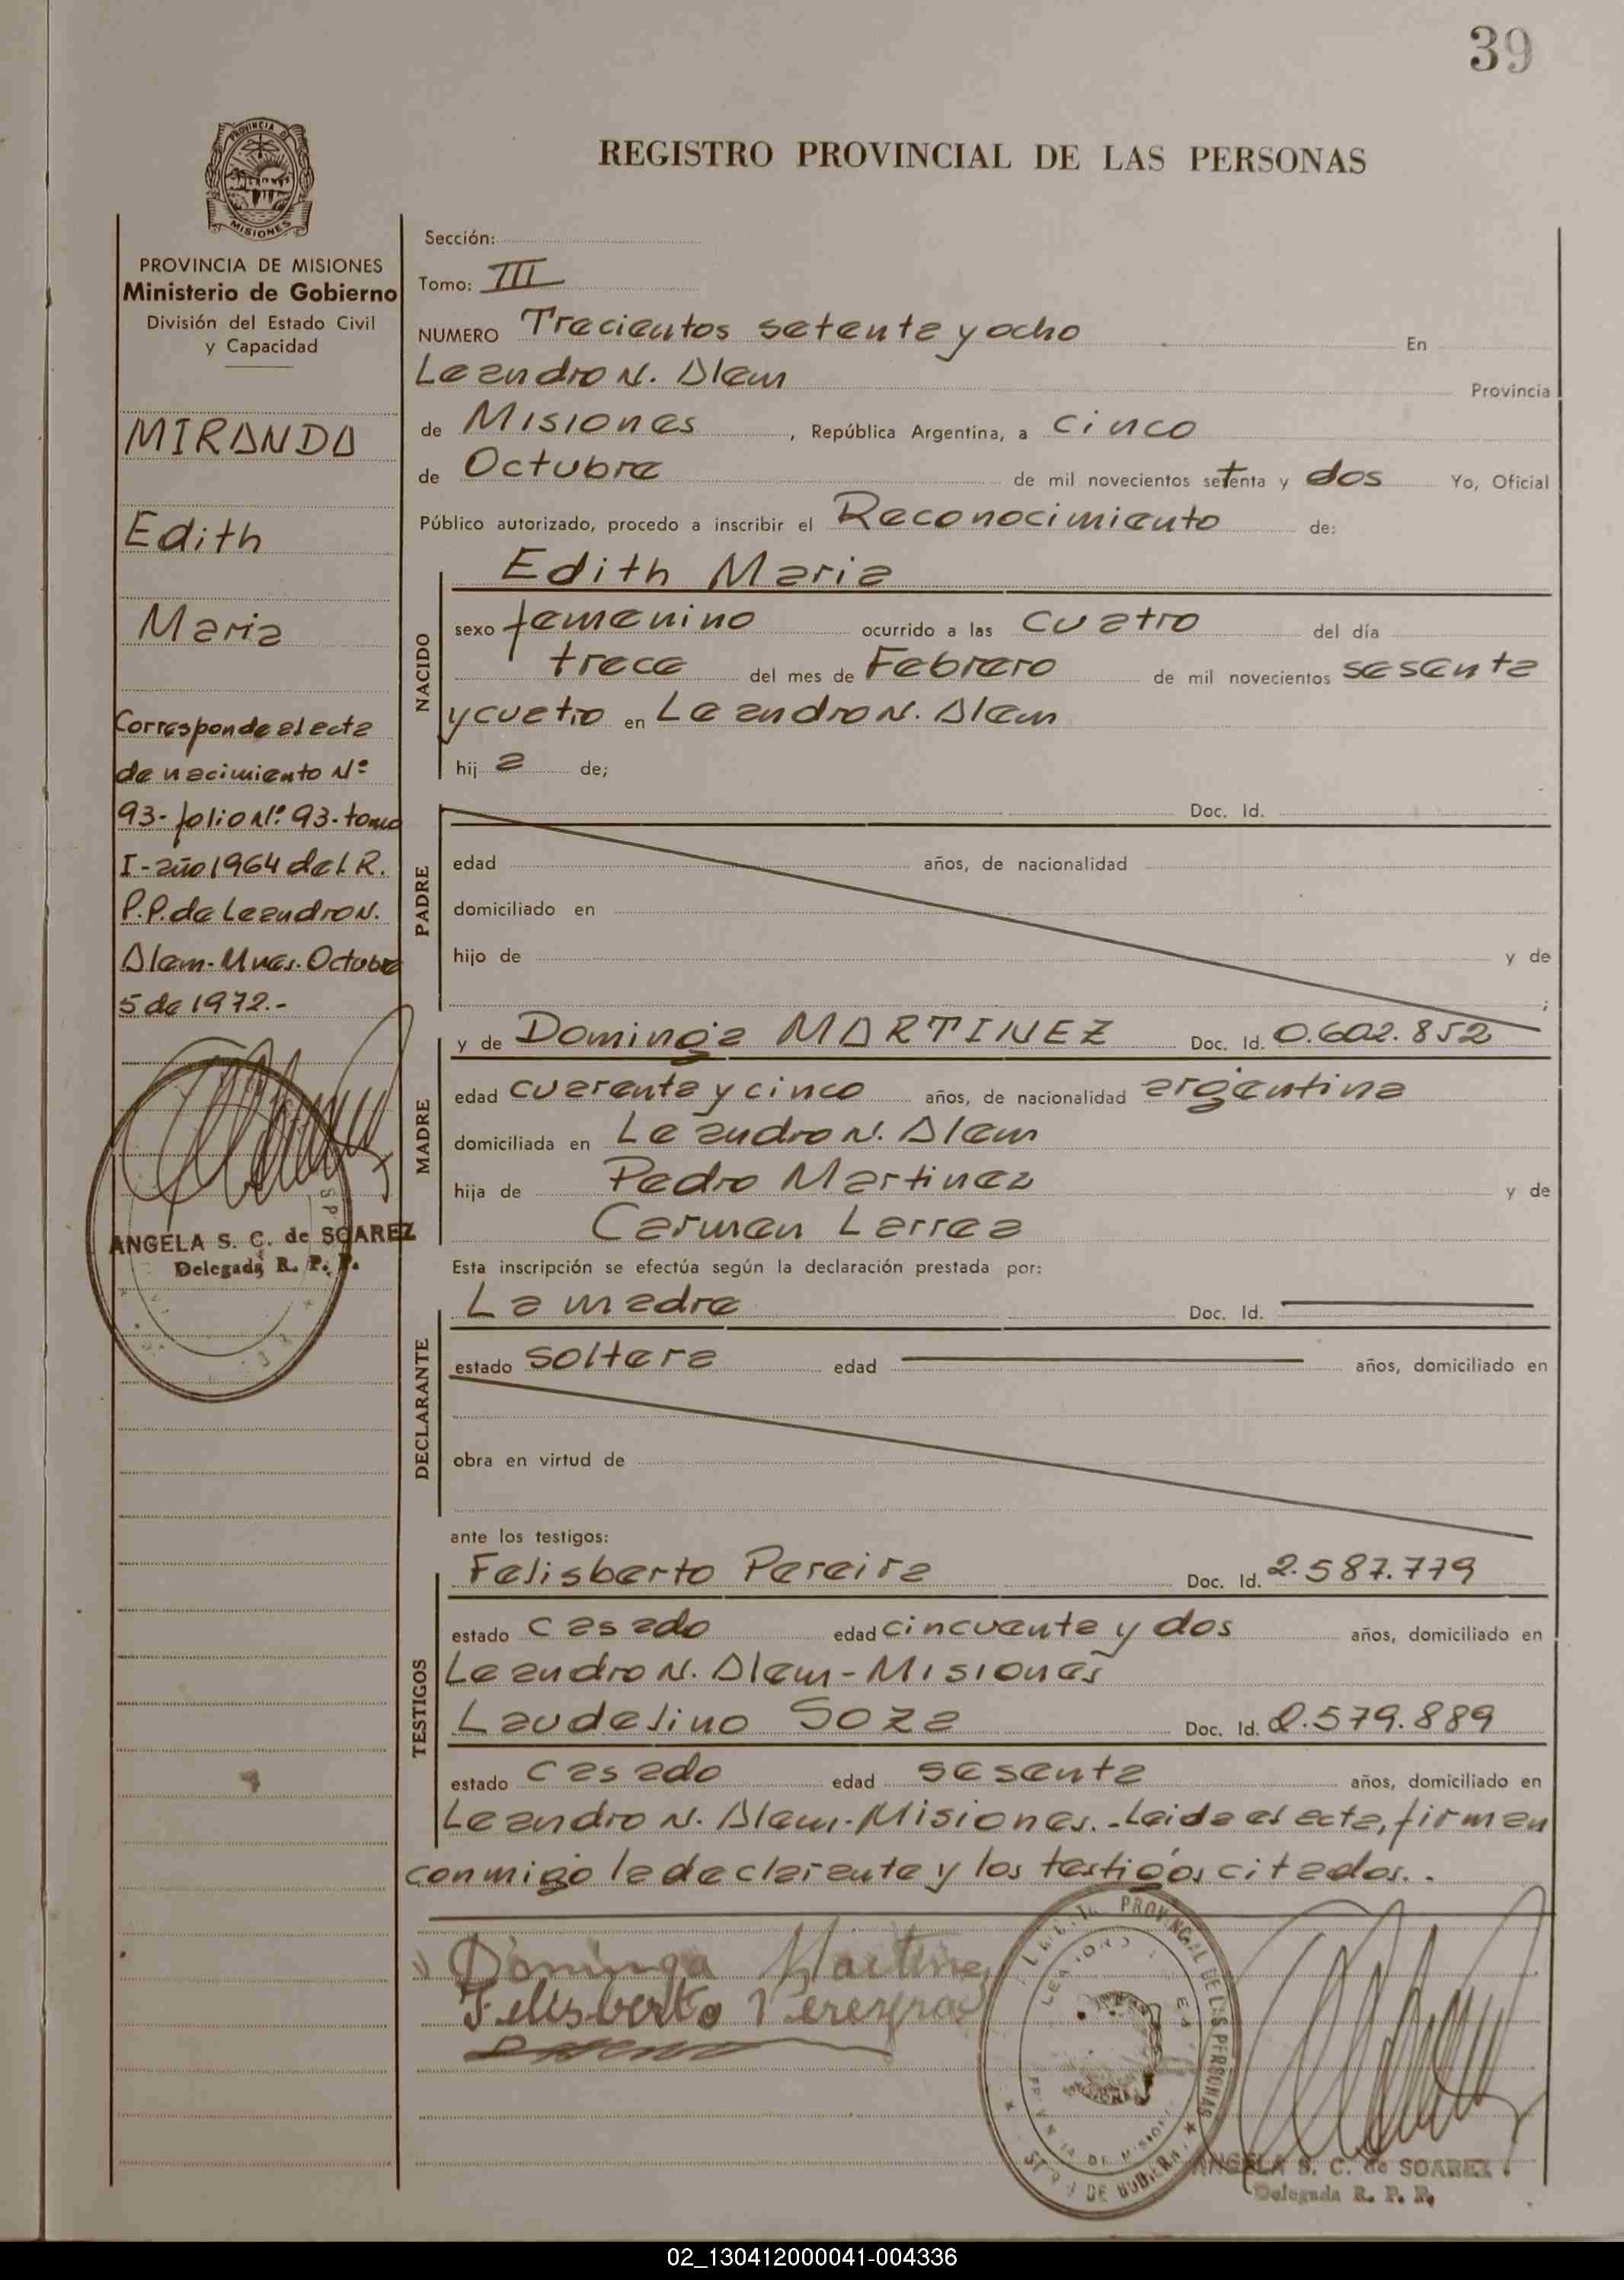 39
REGISTRO PROVINCIAL DE LAS PERSONAS
PROVINCIA DE MISIONES
Ministerio de Gobierno
División del Estado Civil
y Capacidad
MIRANDA
Edith
Maria
Corresponde al acta
de nacimiento Nº
93- folio Nº. 93- tomo
I- año 1964 del R.
P.P. de Leandro N.
Alem- Mnes. Octubre
5 de 1972.-
ANGELA S. C. de SOAREZ
Delegada R. P. P.
Sección:
Tomo: III
NUMERO Trecientos setenta y ocho En
Leandro N. Alem Provincia
de Misiones, República Argentina, a cinco
de Octubre de mil novecientos setenta y dos Yo, Oficial
Público autorizado, procedo a inscribir el Reconocimiento de:
NACIDO
Edith Maria
sexo femenino ocurrido a las cuatro del día
trece del mes de Febrero de mil novecientos sesenta
y cuatro en Leandro N. Alem
hij a de;
PADRE
Doc. Id.
edad años, de nacionalidad
domiciliado en
hijo de y de
;
MADRE
y de Dominga MARTINEZ Doc. Id. 0.602.852
edad cuarenta y cinco años, de nacionalidad argentina
domiciliada en Leandro N. Alem
hija de Pedro Martinez y de
Carman Larrea
Esta inscripción se efectúa según la declaración prestada por:
DECLARANTE
La madre Doc. Id.
estado soltera edad años, domiciliado en
obra en virtud de
ante los testigos:
TESTIGOS
Felisberto Pereira Doc. Id. 2.587.779
estado casado edad cincuenta y dos años, domiciliado en
Leandro N. Alem- Misiones
Laudelino Soza Doc. Id. 2.579.889
estado casado edad sesenta años, domiciliado en
Leandro N. Alem- Misiones.- Leida el acta, firman
conmigo la declarante y los testigos citados..
Dominga Martine
Felisberto Pereyra
PROVINCIAL DE LAS PERSONAS
ANGELA S. C. de SOAREZ
Delegada R. P. P.
02_130412000041-004336